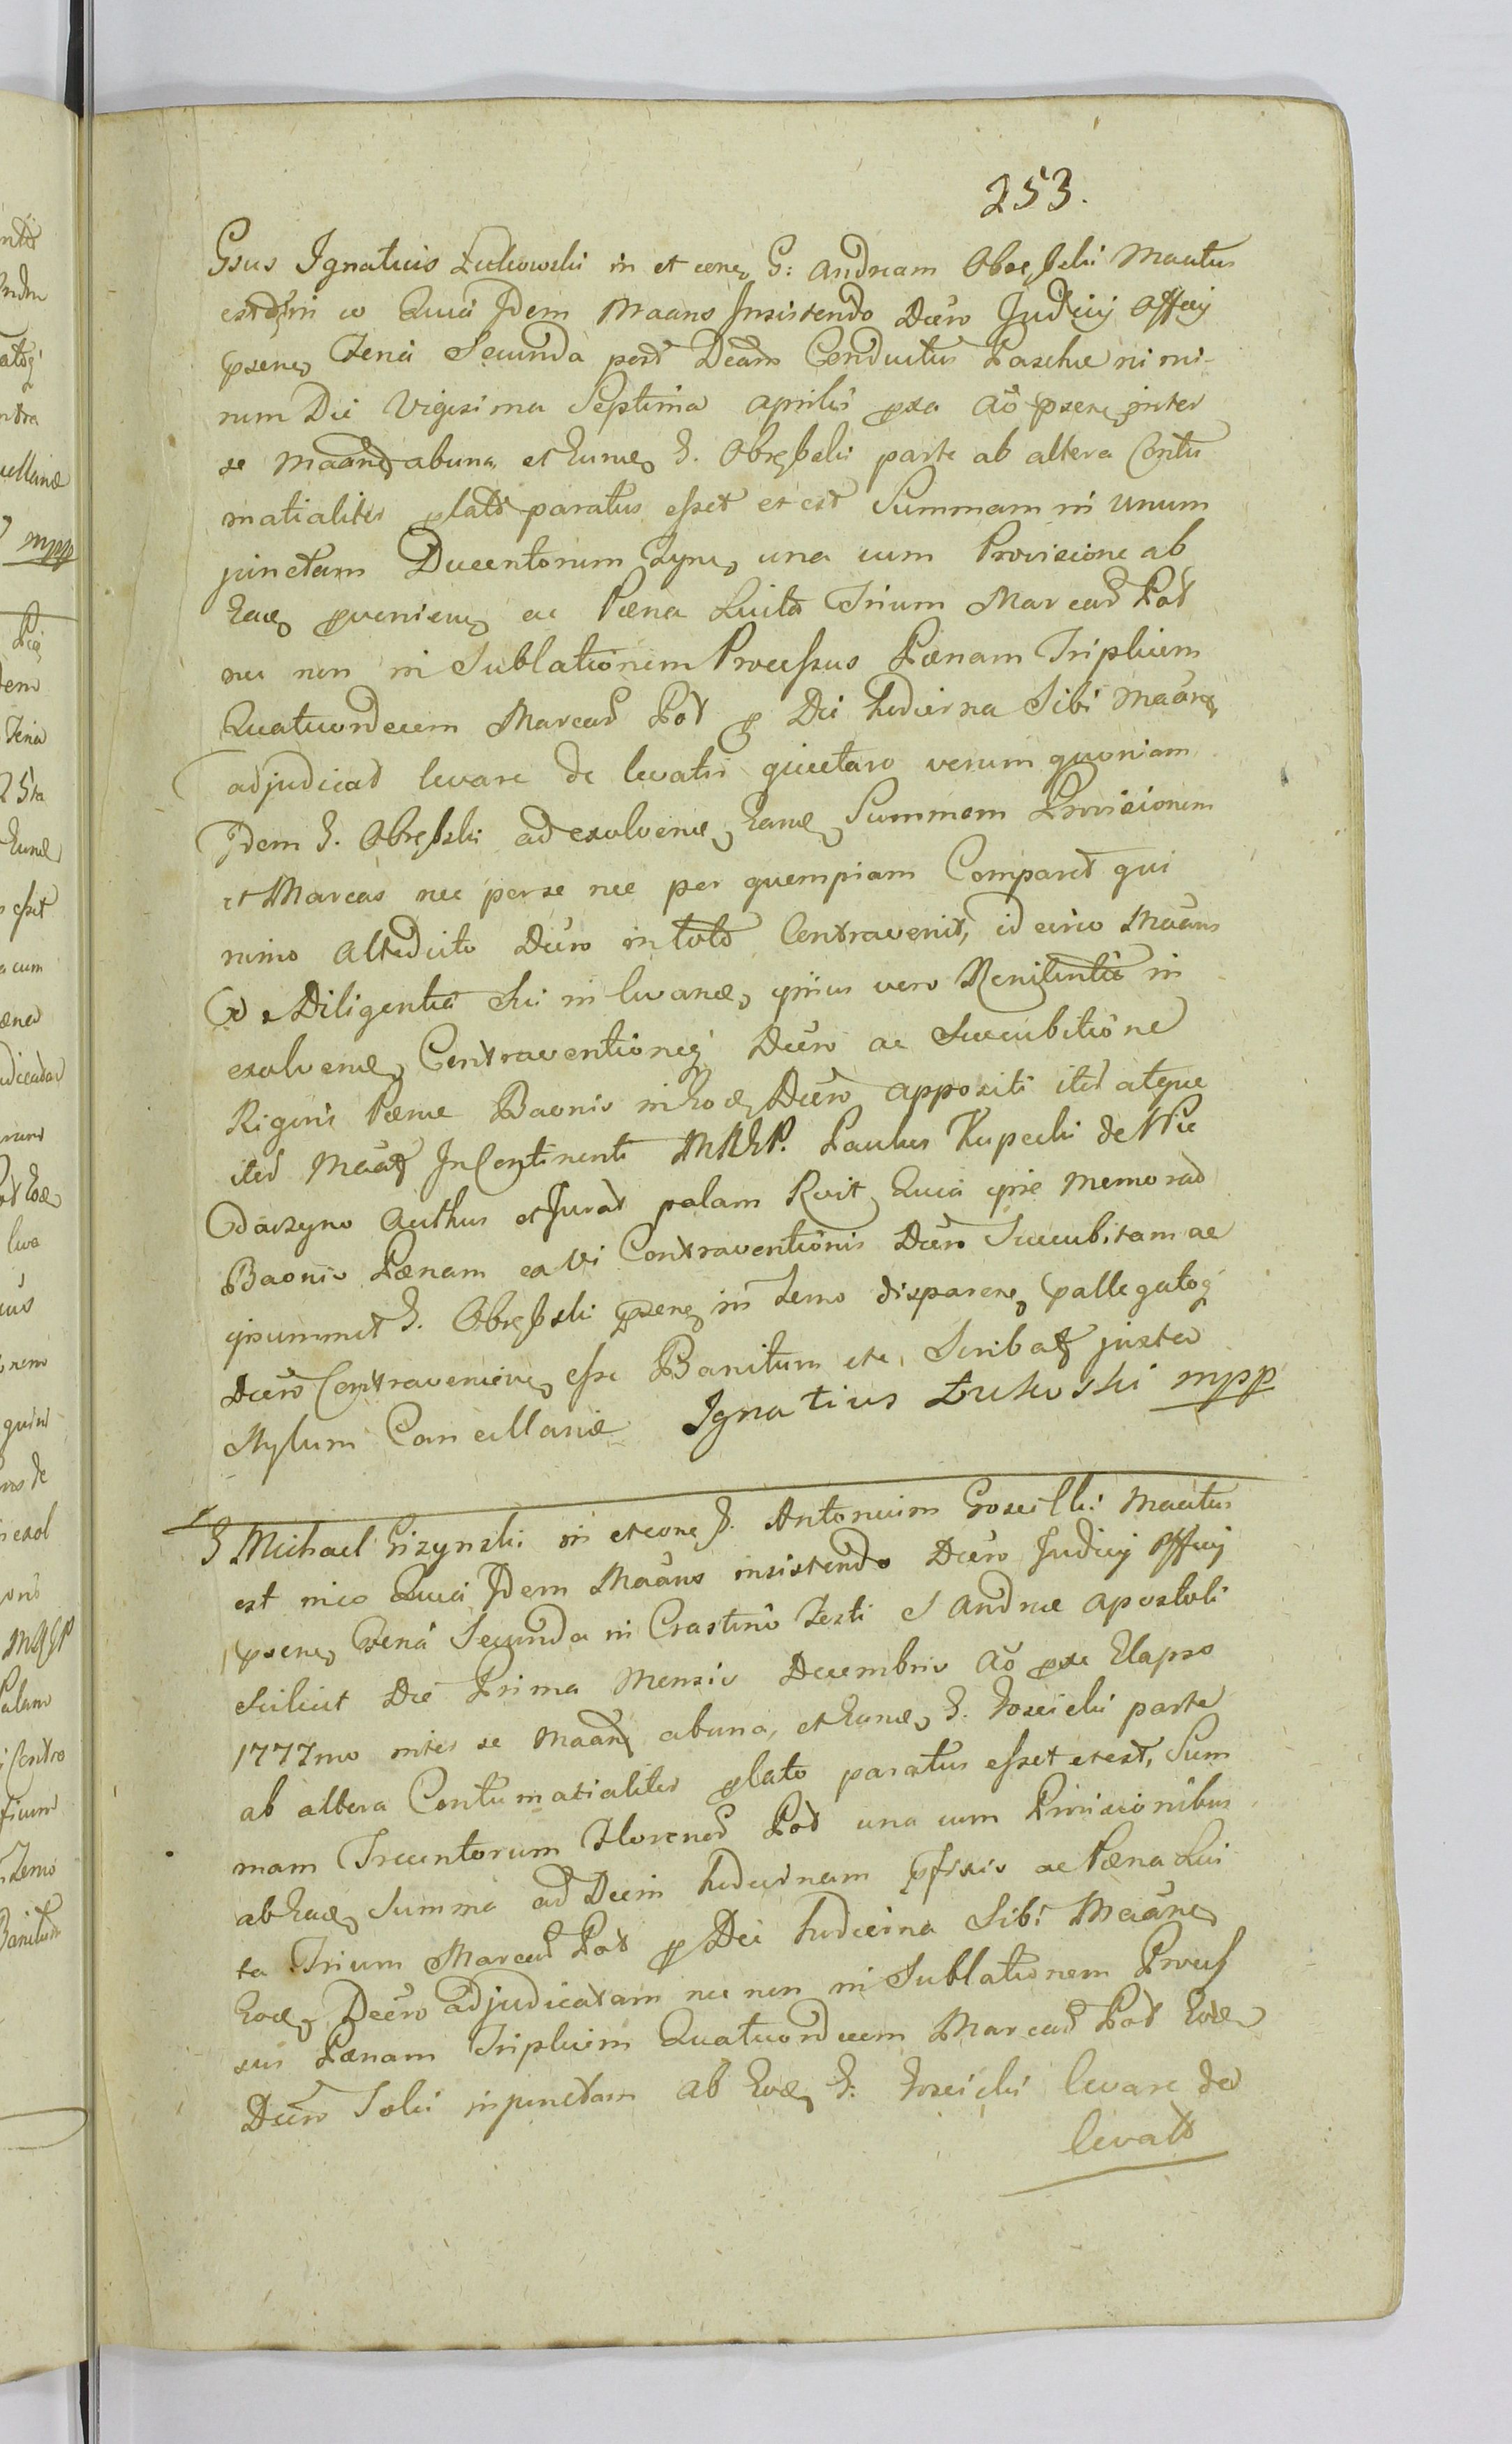 253.
Gsus Ignatius Żukowski in et cone G: Andream Obrębski Maatus
est in eo Quia Idem Maans Insistendo Decro Judicij Officij
psene Feria Secunda post Dcam Conductus Paschae nimi-
rum Die Vigesima Septima Aprilis pxa Ao psene inter
se Maane ab una et Eume G. Obrębski parte ab altera Contu
matialiter plato paratus esset et est Summam in unum
junctam Ducentorum Tynf una cum Provisione ab
Eade proveniene ac Paena Luita Trium Marcar Pol
nec non in Sublationem Processus Paenam Triplicem
Quatuordecem Marcar Pol p Die hodierna Sibi Maane
adjudicat levare de levatis quietaro verum quoniam
Idem G. Obrębski ad exolvene Eame Summam Provisionem
et Marcas nec per se nec per quempiam Comparet qui
nimo Altedicto Decro in toto Contravenit, idcirco Maans
Ex Diligentia Sui in levane, ipsius vero Renitentia in
exolvene Contraventioneq Decro ac Succubitione
Rigoris Paenae Baonis in Eode Decro appositi iter atque
iter Maatq InContinenti MRGP. Paulus Kupecki de Nie
Odarzyno Authus et Jurat palam Rvit Quia ipse memorat
Baonis Paenam ex Vi Contraventionis Decro Succubitam ac
ipsummet G. Obrębski psene in Termo disparene pallegatoq
Decro Contraveniene esse Banitum etc, Scribatq juxta
Stylum Cancellariae Ignatius Żukoski mpp
G Michael Gizynski in et cone G. Antonium Goscicki Maatus
est in eo Quia Idem Maans insistendo Decro Judicij Officij
psene Feria Secunda in Crastino Festi S Andreae Apostoli
Scilicet Die Prima Mensis Decembris Ao pxe Elapso
1777mo inter se Maane ab una, et Eume G. Goscicki parte
ab altera Contumatialiter plato paratus esset et est, Sum
mam Trecentorum Florenor Pol una cum Provisionibus
ab Eade Summa ad Diem hodiernam pfixis ac Paena Lui
ta Trium Marcar Pol p Die hodierna Sibi Maane
Eode Decro adjudicatam nec non in Sublationem Process
sus Paenam Triplicem Quatuordecem Marcar Pol Eode
Decro Solvi injunctam ab Eode G: Goscicki levare de
levatis